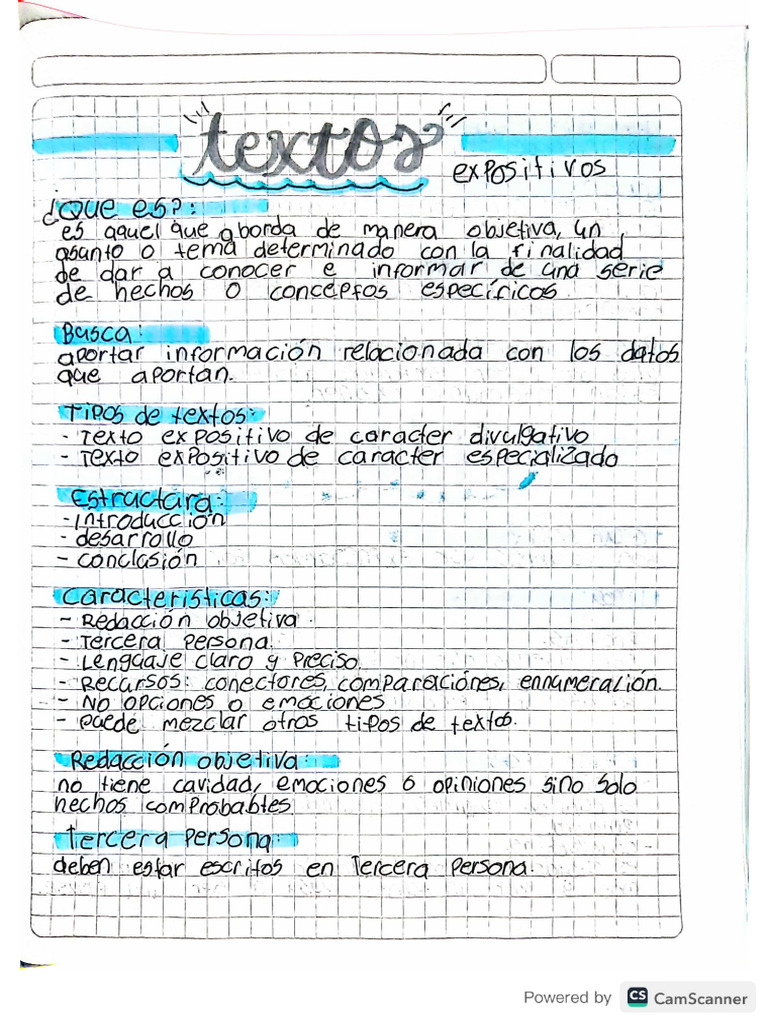 textos
expositivos
¿Que es?:
es aquel que aborda de manera objetiva, un
asunto o tema determinado con la finalidad
de dar a conocer e informar de una serie
de hechos o conceptos específicos.
Busca:
aportar información relacionada con los datos
que aportan.
Tipos de textos:
- Texto expositivo de caracter divulgativo
- Texto expositivo de caracter especializado
Estructura:
- introducción
- desarrollo
- conclusión
Caracteristicas:
- Redacción objetiva.
- Tercera persona.
- Lenguaje claro y preciso.
- Recursos: conectores, comparaciónes, ennumeración.
- No opciones o emociones
- puede mezclar otros tipos de textos.
Redacción objetiva:
no tiene cavidad, emociones ó opiniones sino solo
hechos comprobables.
Tercera persona:
deben estar escritos en Tercera persona.
Powered by CS CamScanner